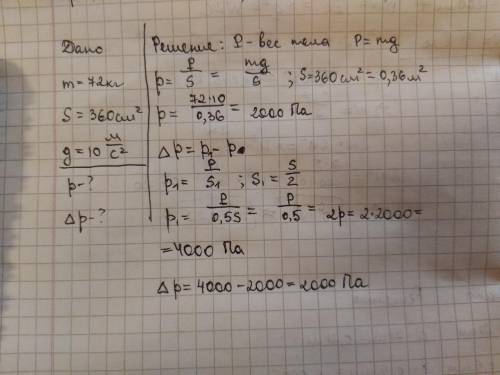 Дано
m = 72 кг
S = 360 см²
g = 10 м/с²
p - ?
Δp - ?
Решение: P - вес тела P = mg
p = P/S = mg/S ; S = 360 см² = 0,36 м²
p = 72·10/0,36 = 2000 Па
Δp = p₁ - p
p₁ = P/S₁ ; S₁ = S/2
p₁ = P/0,5S = p/0,5 = 2p = 2·2000 =
= 4000 Па
Δp = 4000 - 2000 = 2000 Па